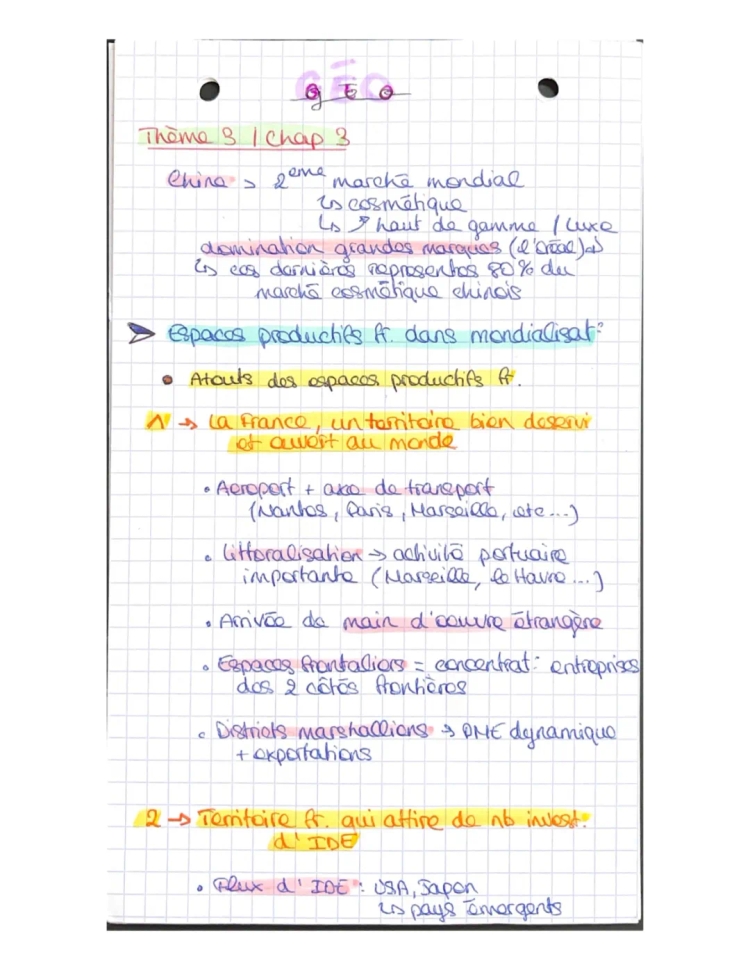 GÉO
Thème 3 / Chap 3
Chine > 2ème marché mondial
↳ cosmétique
↳ ↗ haut de gamme / luxe
domination grandes marques (l'Oréal)
↳ ces dernières représentes 80% du
marché cosmétique chinois
➤ Espaces productifs fr. dans mondialisat°
• Atouts des espaces productifs fr.
1 → La France, un territoire bien desservi
et ouvert au monde
• Aéroport + axe de transport
(Nantes, Paris, Marseille, etc...)
• Littoralisation → activité portuaire
importante (Marseille, le Havre...)
• Arrivée de main d'œuvre étrangère
• Espaces frontaliers = concentrat° entreprises
des 2 côtés frontières
• Districts marshalliens → PME dynamique
+ exportations
2 → Territoire fr. qui attire de nb invest.
d'IDE
• Flux d'IDE : USA, Japon
↳ pays émergents